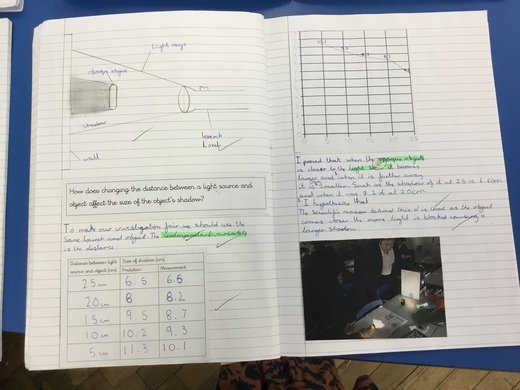 Light rays
opaque object
shadow
torch
wall
How does changing the distance between a light source and
object affect the size of the object's shadow?
To make our investigation fair we should use the
same torch and object. The independent variable
is the distance.
Distance between light
source and object (cm)
Size of shadow (cm)
Prediction
Measurement
25cm 6.5 6.6
20cm 8 8.2
15cm 9.5 8.7
10cm 10.2 9.3
5cm 11.3 10.1
0 5 10 15 20 25
I proved that when the opaque object
is closer to the light it becomes
larger and when it is further away
it is smaller. Such as the shadow of it at 25 is 6.6cm
and when it was 8.2 it at 20cm.
I hypothesis that
The scientific reason behind this is that as the object
comes closer the more light is blocked causing a
larger shadow.